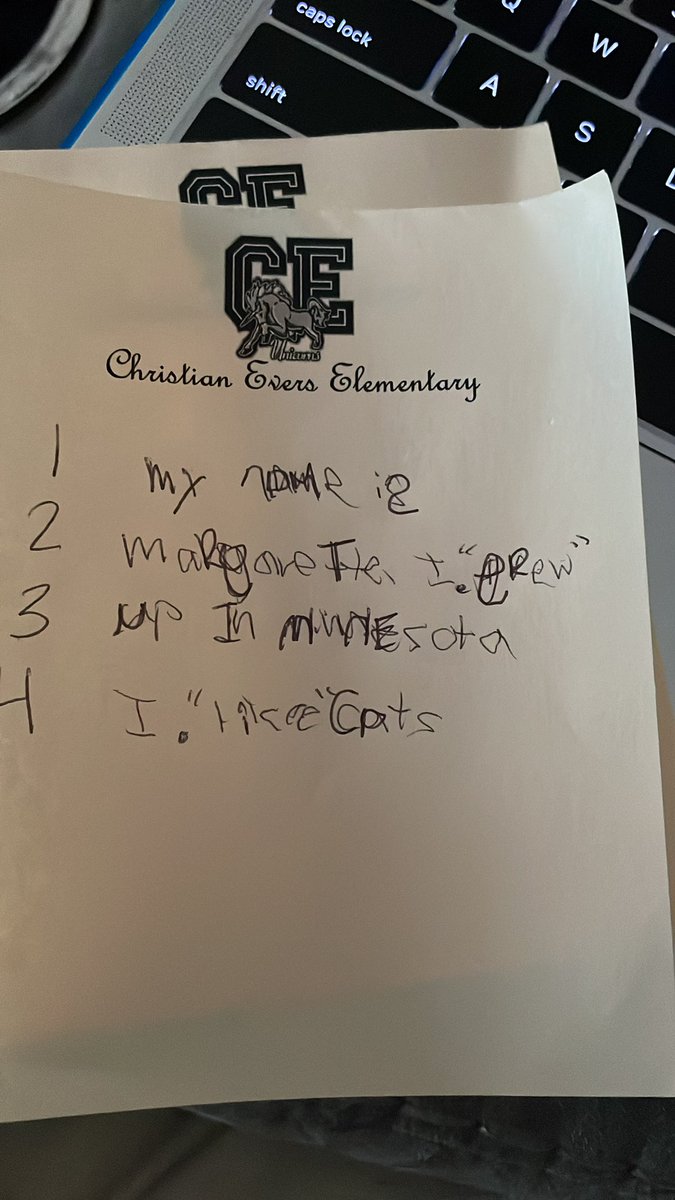 Q
caps lock
W
A
shift
S
CE
CE
Unicorns
Christian Evers Elementary
1 My name is
2 Margarette. I. "grew"
3 up In Minnesota
4 I. "like" Cats